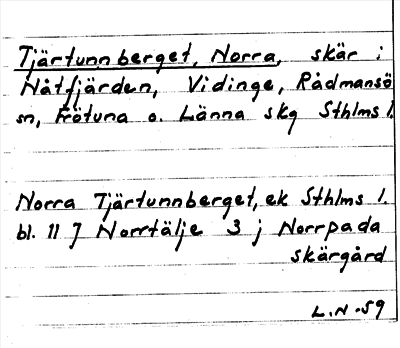 Tjärtunnberget, Norra, skär i
Nåtfjärden, Vidinge, Rådmansö
sn, Frötuna o. Länna skg Sthlms l.
Norra Tjärtunnberget, ek Sthlms l.
bl. 11 J Norrtälje 3 ; Norrpada
skärgård
L.N -59